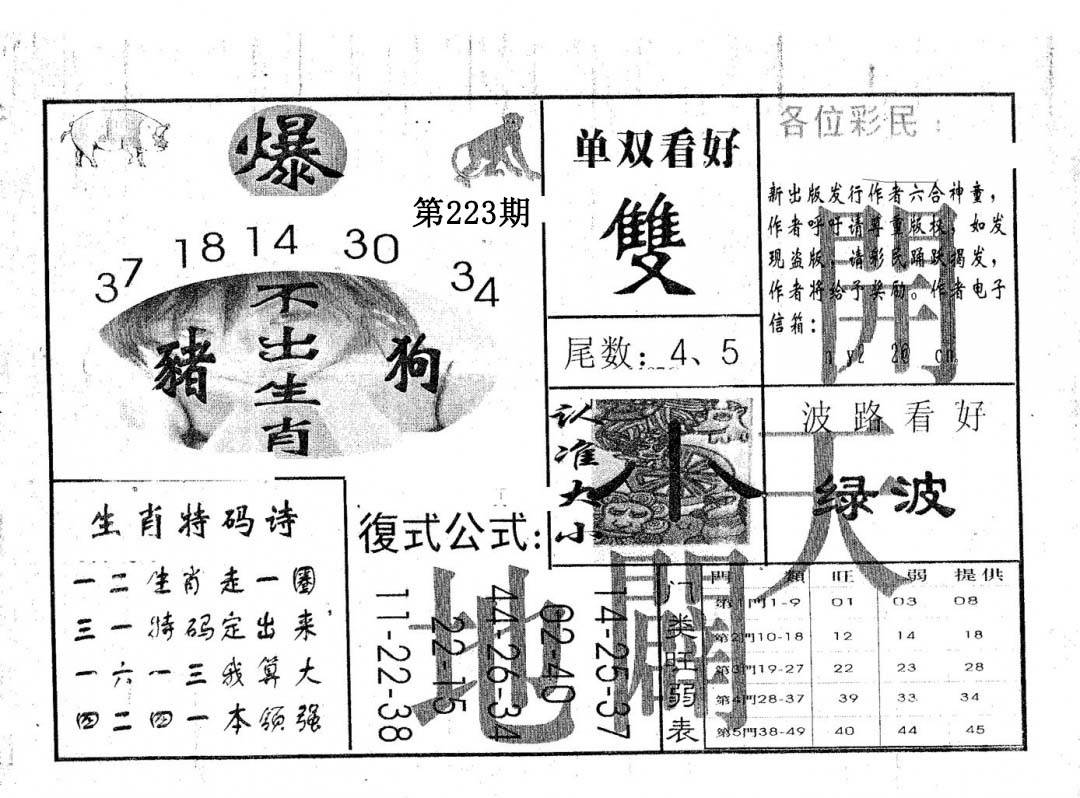 爆
第223期
37 18 14 30 34
不出生肖
豬
狗
单双看好
雙
尾数：4、5
各位彩民：
新出版发行作者六合神童，
作者呼吁请尊重版权，如发
现盗版，请彩民踊跃揭发，
作者将给予奖励。作者电子
信箱：
開
认准大小
小
波路看好
绿波
天
生肖特码诗
一二生肖走一圈
三一特码定出来，
一六一三我算大
四二四一本领强
復式公式：
11-22-38
22-15
44-26-34
02-40
14-25-37
地
開
门类旺弱表
門類 旺 弱 提供
第1門1-9 01 03 08
第2門10-18 12 14 18
第3門19-27 22 23 28
第4門28-37 39 33 34
第5門38-49 40 44 45